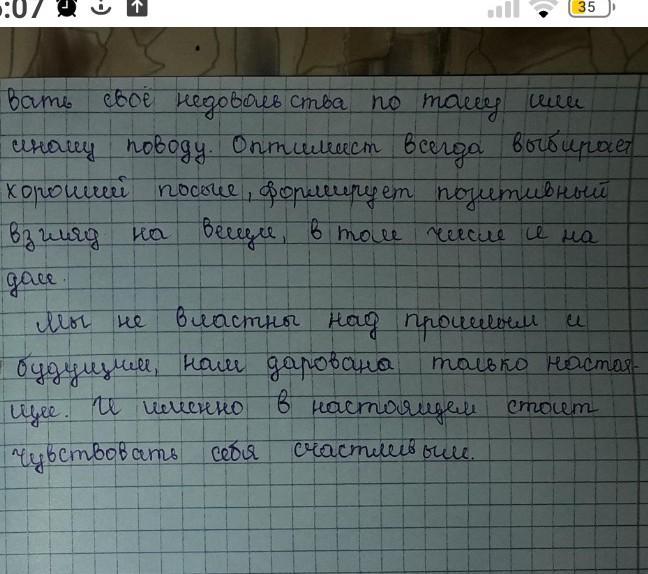 :07
35
вать своё недовольства по тому или
иному поводу. Оптимист всегда выбирает
хороший посыл, формирует позитивный
взгляд на вещи, в том числе и на
дом.
Мы не властны над прошлым и
будущим, нам дарована только настоя-
щее. И именно в настоящем стоит
чувствовать себя счастливым.